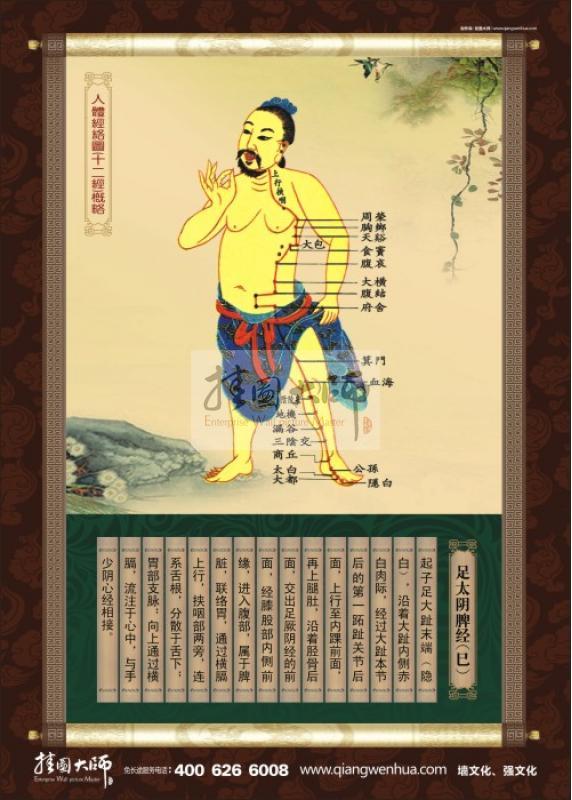 挂图大师 | www.qiangwenhua.com
人體經絡圖(十二經概略
上行挾咽
周榮
胸鄉
天谿
大包
食竇
腹哀
大橫
腹結
府舍
箕門
血海
挂图大师
Enterprise Wall picture Master
陰陵泉
地機
漏谷
三陰交
商丘
太白
大都
公孫
隱白
足太阴脾经(巳)
起子足大趾末端（隐
白），沿着大趾内侧赤
白肉际，经过大趾本节
后的第一跖趾关节后
面，上行至内踝前面，
再上腿肚，沿着胫骨后
面，交出足厥阴经的前
面，经膝股部内侧前
缘，进入腹部，属于脾
脏，联络胃，通过横膈
上行，挟咽部两旁，连
系舌根，分散于舌下；
胃部支脉：向上通过横
膈，流注于心中，与手
少阴心经相接。
挂图大师
Enterprise Wall picture Master
免长途服务电话：400 626 6008 www.qiangwenhua.com 墙文化、强文化